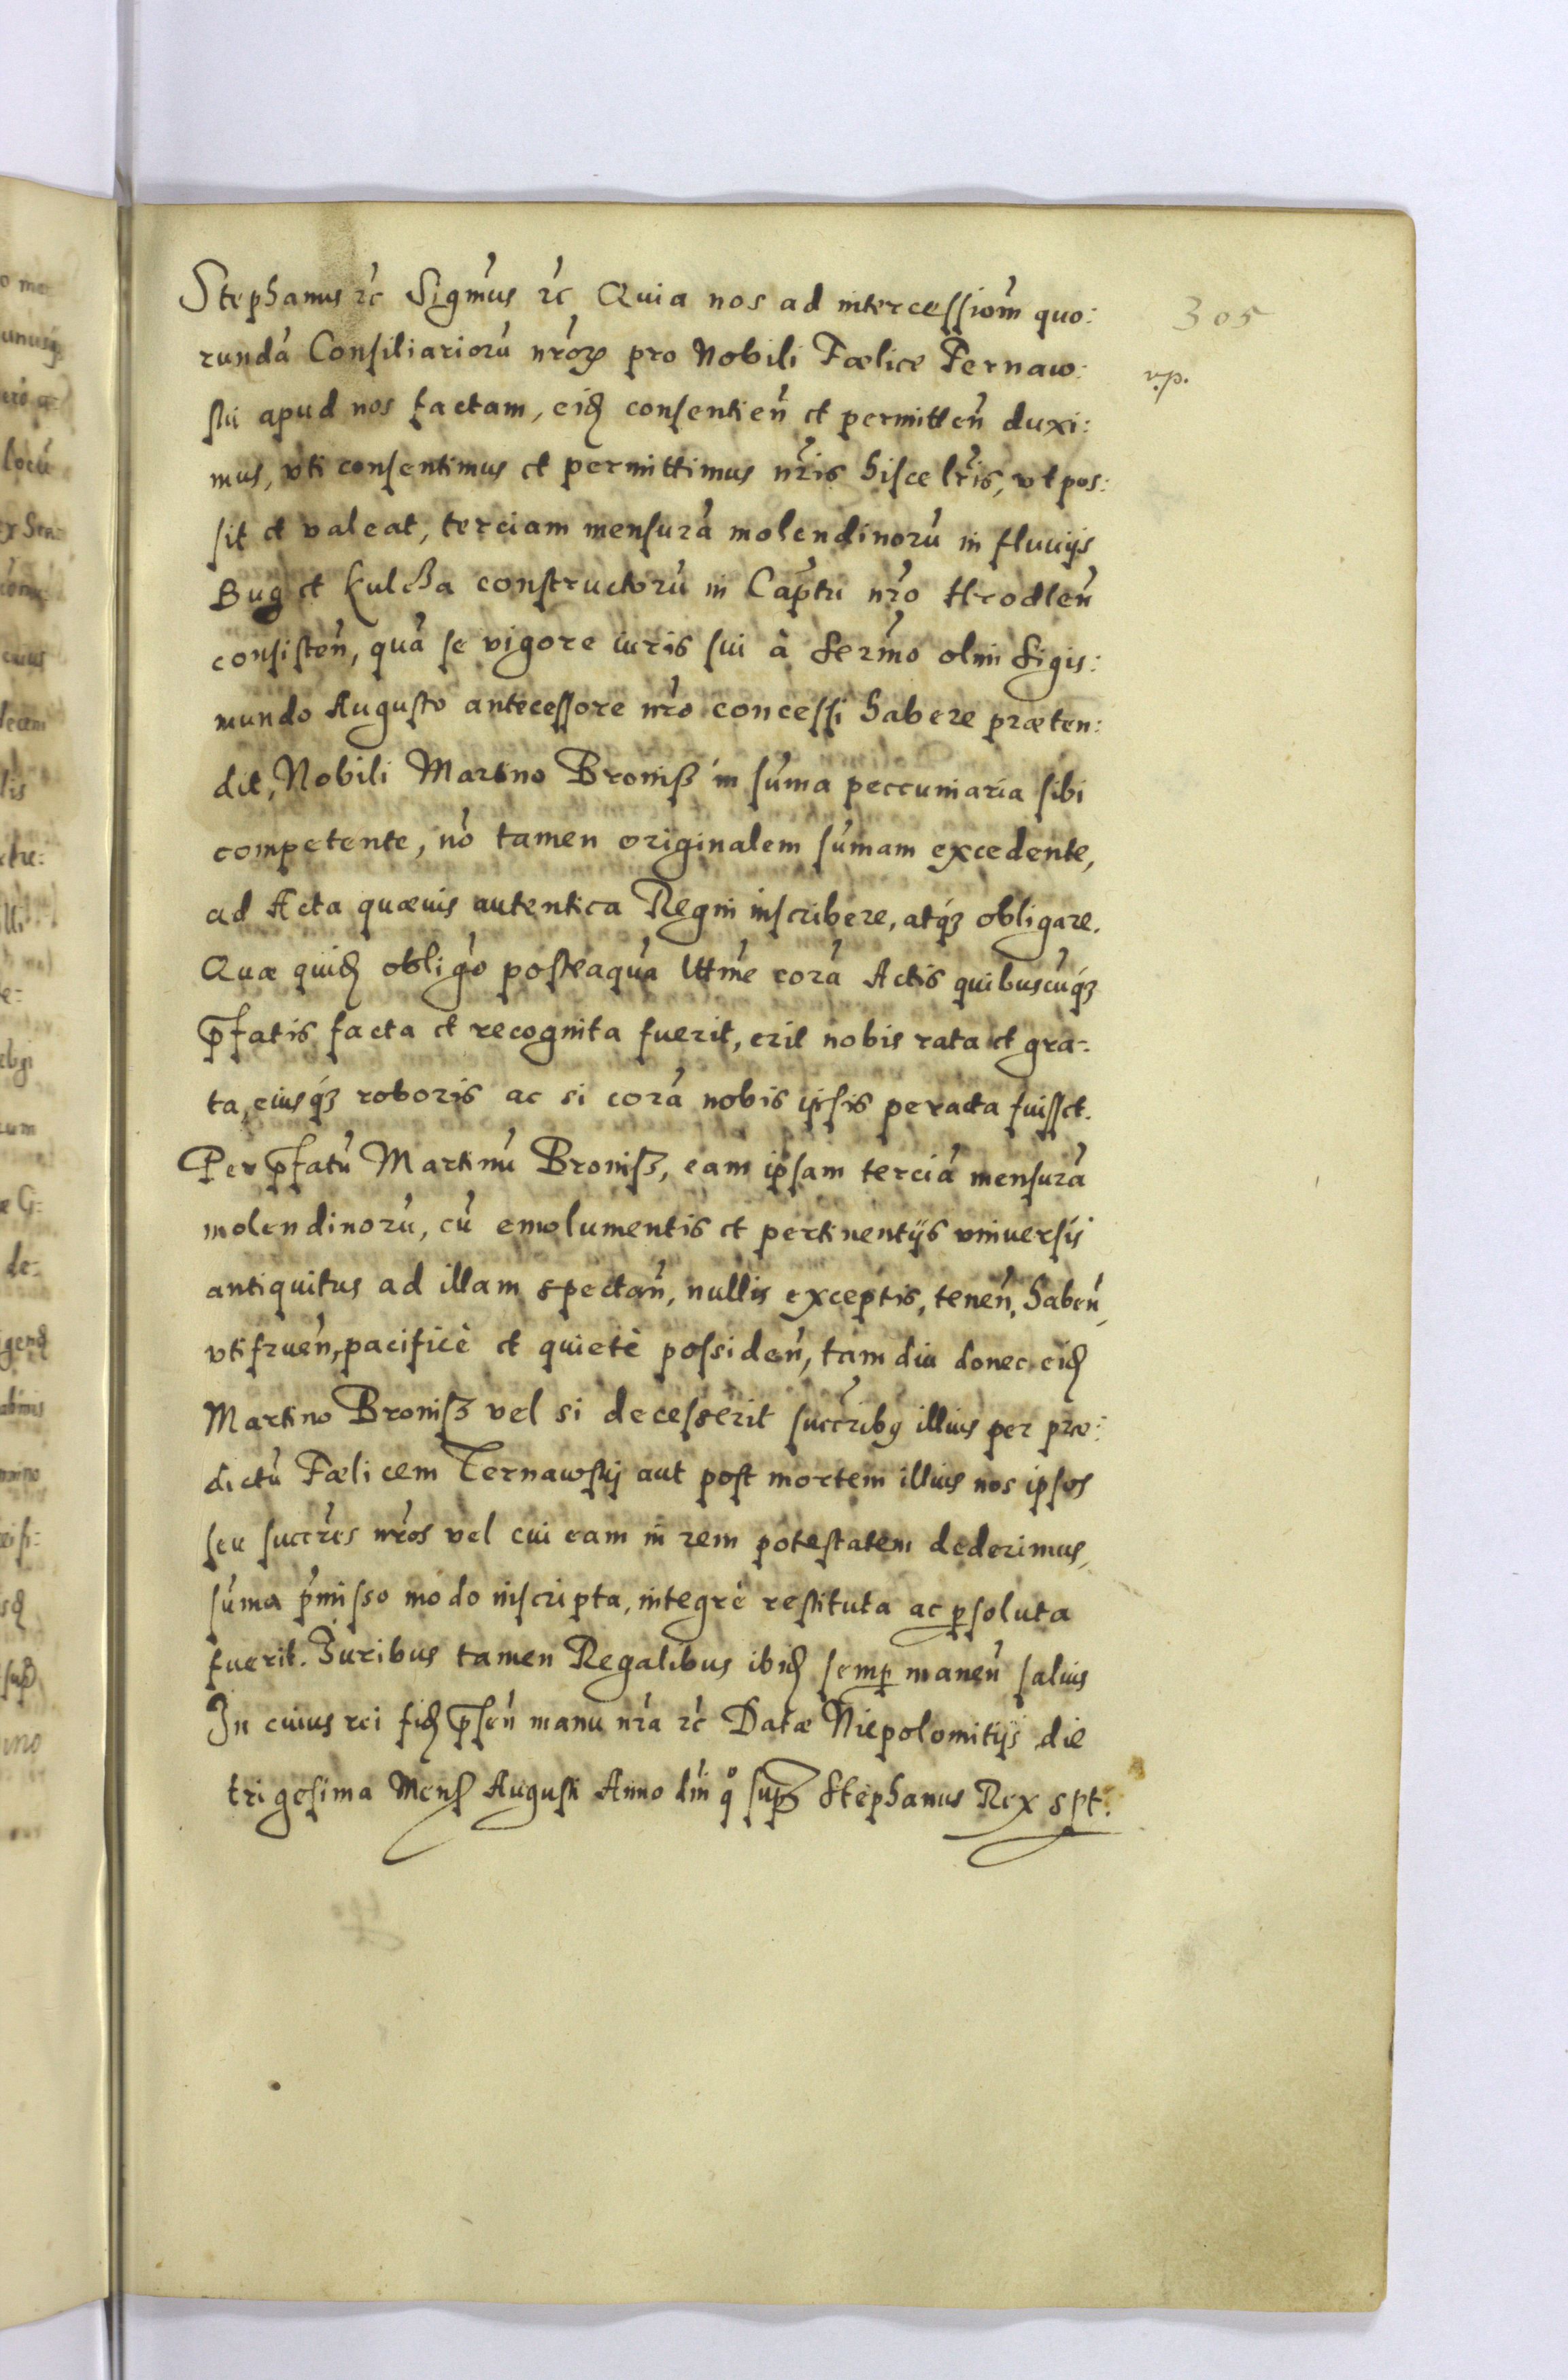 Stephanus ꝛc Sigm̃us ꝛc Quia nos ad intercessiom̃ quo: 305
rundã Consiliariorũ nr̃oꝝ pro Nobili Fælice Pernaw: v.p.
ski apud nos factam, eid consentien̄ et permitten̄ duxi:
mus, vti consentimus et permittimus nr̃is hisce lr̃is, vt pos:
sit et valeat, terciam mensurã molendinorũ in fluuijs
Bug et Kulcha constructorũ in Capt̃u nr̃o Hrodlen̄
consisten̄, quã se vigore iuris sui â Serm̃o olim Sigis:
mundo Augusto antecessore nr̃o concessi habere præten:
dit, Nobili Martino Bronisz in sũma peccuniaria sibi
competente, nõ tamen originalem sũmam excedente,
ad Acta quævis autentica Regni inscribere, atqꝫ obligare.
Quæ quid obligõ posteaquã lt̃tme corã Actis quibuscũqꝫ
p̃fatis facta et recognita fuerit, erit nobis rata et gra:
ta, eiusqꝫ roboris ac si corã nobis ipsis peracta fuisset.
Per p̃fatũ Martinũ Bronisz, eam ipsam terciã mensurã
molendinorũ, cũ emolumentis et pertinentijs vniuersis
antiquitus ad illam spectan̄, nullis exceptis, tenen̄, haben̄,
vtifruen̄, pacificè et quietè possiden̄, tam diu donec eid
Martino Bronisz vel si decesserit succr̃ibꝰ illius per præ:
dictũ Fælicem Ternawskij aut post mortem illius nos ipsos
seu succr̃es nr̃os vel cui eam in rem potestatem dederimus,
sũma p̃misso modo inscripta, integrè restituta ac ꝑsoluta
fuerit. Juribus tamen Regalibus ibid semꝑ manen̄ saluis
In cuius rei fid p̃sen̄ manu nr̃a ꝛc Datæ Niepolomitijs die
trigesima Mens Augusti Anno dn̄i qͦ supꝫ Stephanus Rex spt.